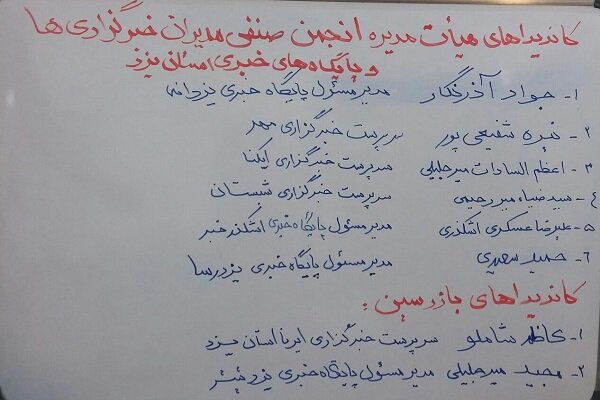 کاندیداهای هیأت مدیره انجمن صنفی مدیران خبرگزاری ها
و پایگاه های خبری استان یزد
۱- جواد آذرنگار مدیر مسئول پایگاه خبری یزدامه
۲- نیره شفیعی پور سرپرست خبرگزاری مهر
۳- اعظم السادات میرجلیلی سرپرست خبرگزاری ایکنا
۴- سید ضیاء میررحیمی سرپرست خبرگزاری شبستان
۵- علیرضا عسکری اشکذری مدیر مسئول پایگاه خبری اشکذر خبر
۶- حمید مدیر مسئول پایگاه خبری یزد رسا
کاندیداهای بازرسین :
۱- کاظم شاملو سرپرست خبرگزاری ایرنا استان یزد
۲- مجید میرجلیلی مدیر مسئول پایگاه خبری یزد